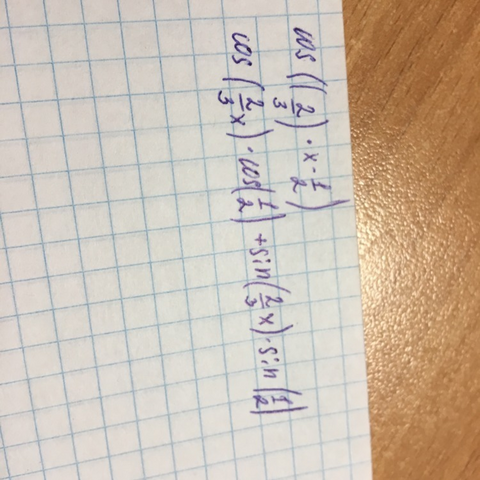 cos((2/3)·x-1/2)
cos(2/3x)·cos(1/2)+sin(2/3x)·sin(1/2)